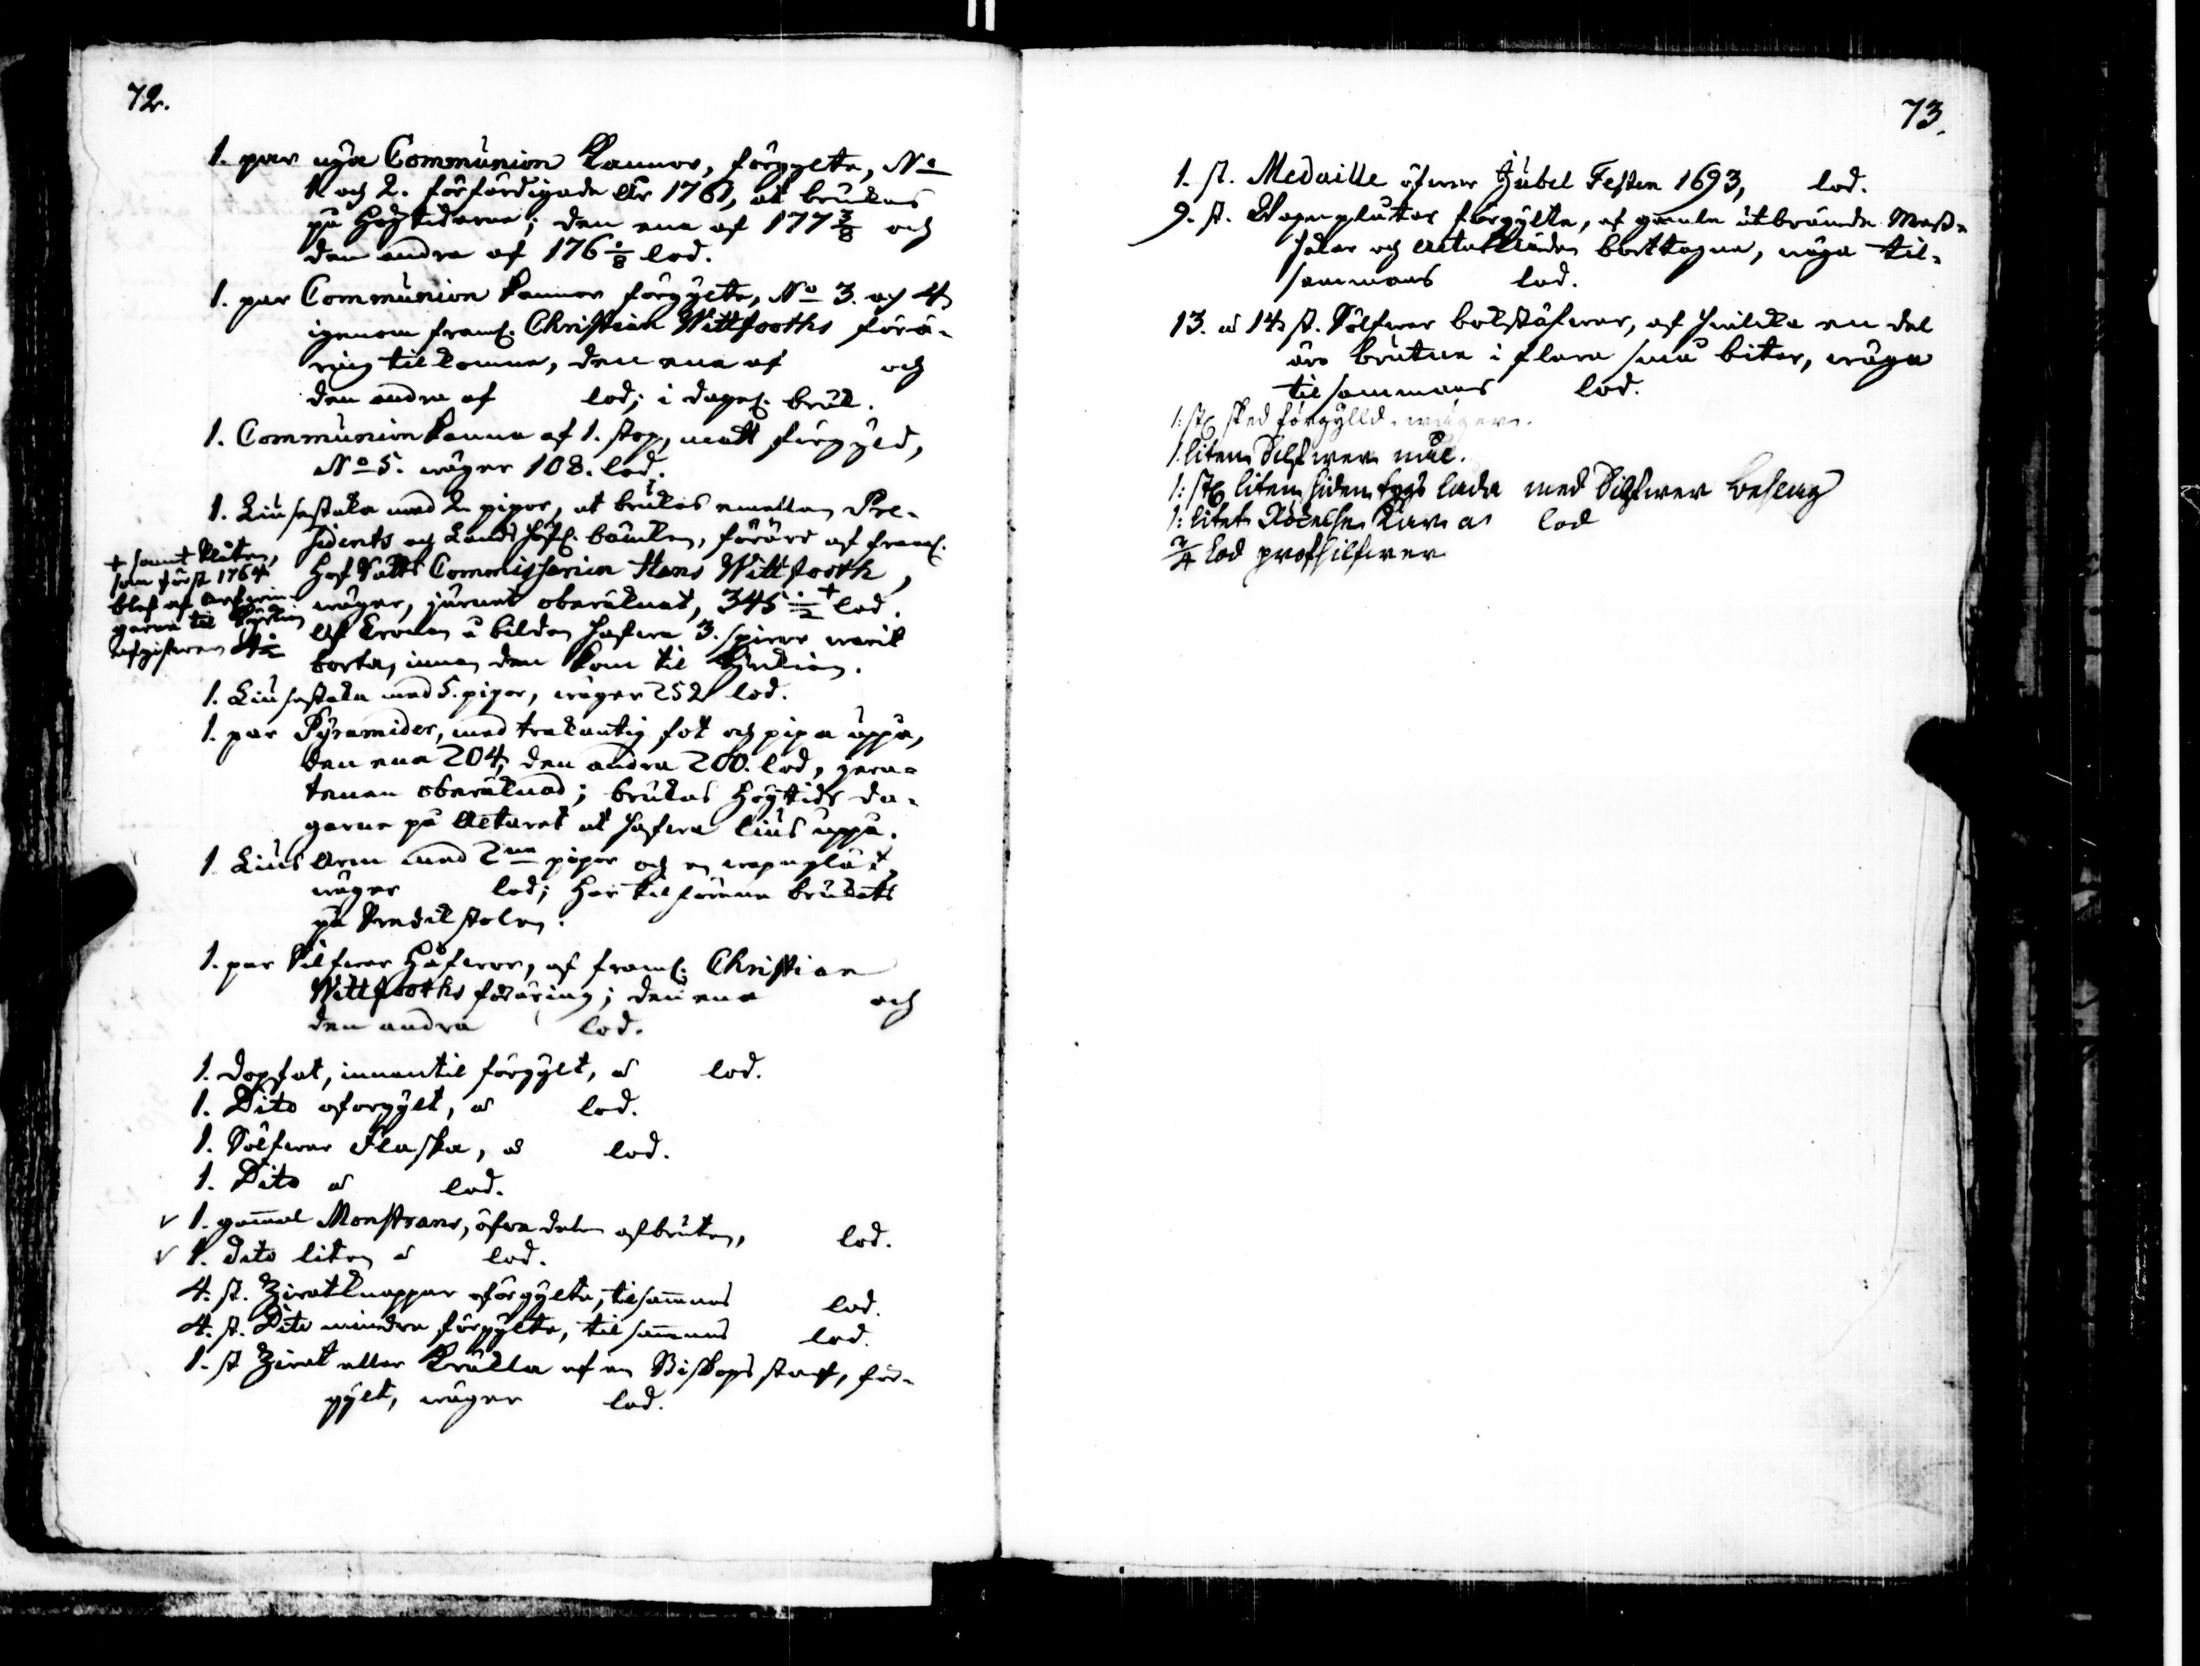 72.
1. par nya Communion Kannor, förgylte, No
1. och 2. förfärdigade År 1761, at brukas
på Högtiderne; den ena af 177 3/8 och
den andra af 176 1/8 lod.
1. par Communion kannor förgylte, No 3. och 4
igenom framl. Christian Wittfooths förä-
ring tilkomne, den ena af och
den andra af lod; i dagel. bruk.
1. Communion kanna af 1. stop, matt förgyld,
No 5. wäger 108. lod.
1. Liusestake med 2 pipor, at brukas emellan Pre-
sidents och Landshöfd. bänken, förärd af framl.
Hof Rätts Commissarien Hans Wittfooth,
wäger, järnet oberäknat, 345 1/2 + lod.
Af Cronan å bilden hafwa 3. spiror warit
borta, innan den kom til Kyrkian.
+ samt Skruten,
som först 1764
blef af arfwin-
garne til Kyrkian
afgifwen 4 1/2
1. Liusestake med 5. pipor, wäger 252 lod.
1. par Pyramider, med trekantig fot och pipa uppå,
den ena 204, den andra 200. lod, jern-
tenen oberäknad; brukas Högtids da-
garne på Altaret at hafwa lius uppå.
1. Lius Arm med 2ne pipor och en wapnplåt,
wäger lod; har tilförene brukats
på Predikstolen.
1. par Silfwer Håfwor, af framl. Christian
Wittfooths föräring; den ena och
den andra lod.
1. Dopfat, innantil förgylt, à lod.
1. Dito oförgylt, à lod.
1. Sölfwer Flaska, à lod.
1. Dito à lod.
v 1. gammal Monstrans, öfre delen afbruten, lod.
v 1. dito liten à lod.
4. st. Ziratknappar oförgylte, tilsammans lod.
4. st. Dito mindre förgylte, tilsammans lod.
1. st Zirat eller Krulla af en Biskops staf, för-
gylt, wäger lod.
73.
1. st. Medaille öfwer Jubel Festen 1693, lod.
9. st. Wapnplåtar förgylte, af gamla utbrända Mess-
hakar och Altarkläden borttagne, wäga til-
sammans lod.
13. à 14 st. Sölfwer bokstäfwer, af hwilka en del
äro brutne i flera små bitar, wäga
tilsammans lod.
1: st sked förgylld. wäger.
1. liten Silfwer
1: st liten siden tygs lada med Silfwer beslag
1: litet à lod
3/4 Lod profsilfwer